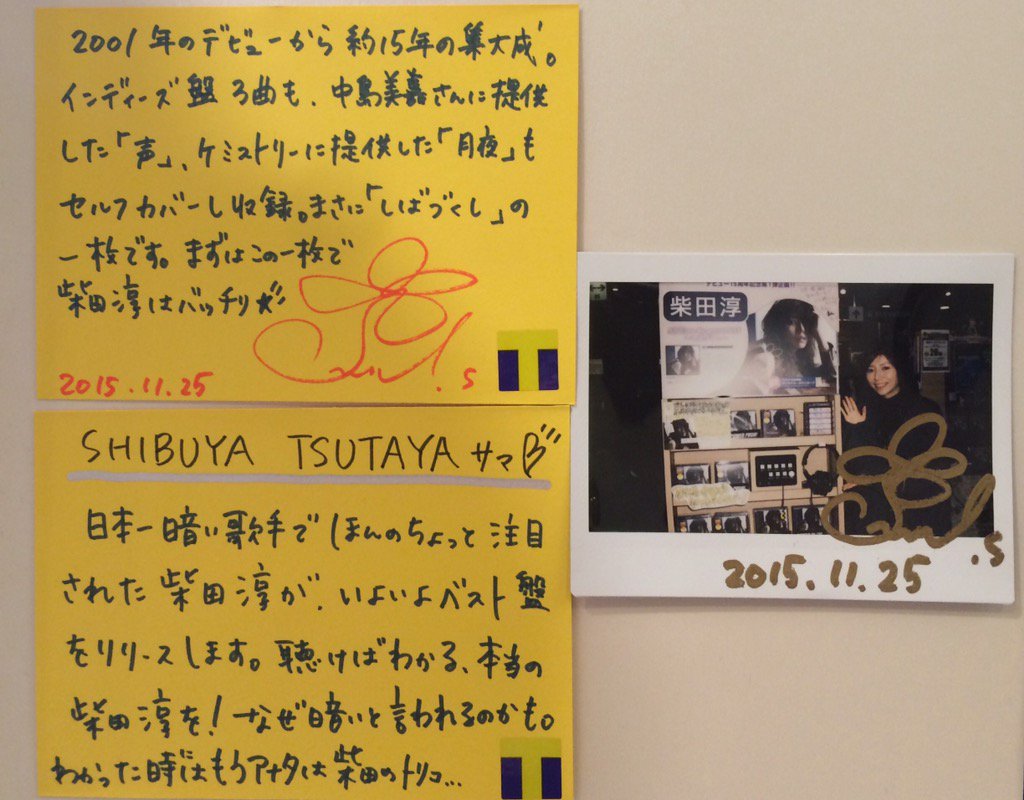 2001年のデビューから約15年の集大成。
インディーズ盤3曲も、中島美嘉さんに提供
した「声」、ケミストリーに提供した「月夜」も
セルフカバーし収録。まさに「しばづくし」の
一枚です。まずはこの一枚で
柴田淳はバッチリ☆
2015.11.25
.S
SHIBUYA TSUTAYA サマ
日本一暗い歌手でほんのちょっと注目
された柴田淳が、いよいよベスト盤
をリリースします。聴けばわかる、本当の
柴田淳を!なぜ暗いと言われるのかも。
わかった時にはもうアナタは柴田のトリコ...
柴田淳
.S
2015.11.25